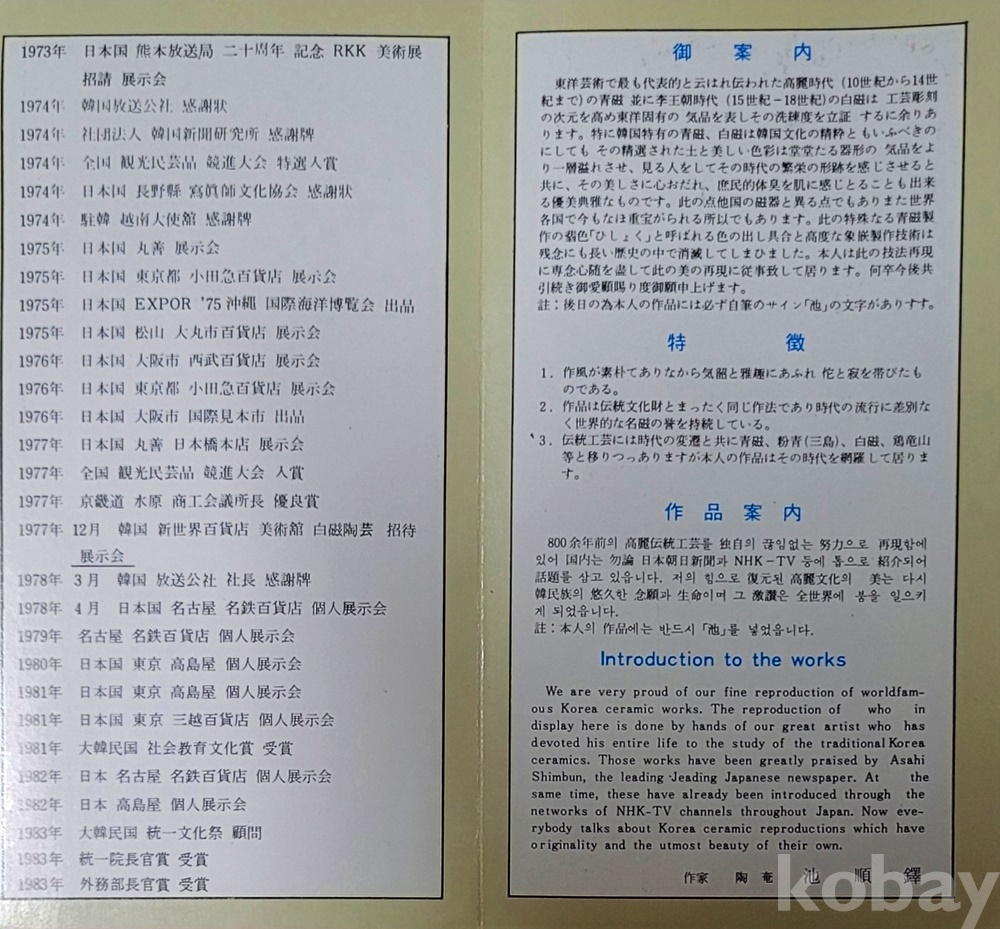 1973年 日本国 熊本放送局 二十周年 記念 RKK 美術展
招請 展示会
1974年 韓国放送公社 感謝狀
1974年 社団法人 韓国新聞研究所 感謝牌
1974年 全国 観光民芸品 競進大会 特選入賞
1974年 日本国 長野縣 寫眞師文化協会 感謝狀
1974年 駐韓 越南大使舘 感謝牌
1975年 日本国 丸善 展示会
1975年 日本国 東京都 小田急百貨店 展示会
1975年 日本国 EXPOR '75 沖縄 国際海洋博覧会 出品
1975年 日本国 松山 大丸市百貨店 展示会
1976年 日本国 大阪市 西武百貨店 展示会
1976年 日本国 東京都 小田急百貨店 展示会
1976年 日本国 大阪市 国際見本市 出品
1977年 日本国 丸善 日本橋本店 展示会
1977年 全国 観光民芸品 競進大会 入賞
1977年 京畿道 水原 商工会議所長 優良賞
1977年 12月 韓国 新世界百貨店 美術舘 白磁陶芸 招待
展示会
1978年 3月 韓国 放送公社 社長 感謝牌
1978年 4月 日本国 名古屋 名鉄百貨店 個人展示会
1979年 名古屋 名鉄百貨店 個人展示会
1980年 日本国 東京 高島屋 個人展示会
1981年 日本国 東京 高島屋 個人展示会
1981年 日本国 東京 三越百貨店 個人展示会
1981年 大韓民国 社会教育文化賞 受賞
1982年 日本 名古屋 名鉄百貨店 個人展示会
1982年 日本 高島屋 個人展示会
1983年 大韓民国 統一文化祭 顧問
1983年 統一院長官賞 受賞
1983年 外務部長官賞 受賞
御案内
東洋芸術で最も代表的と云はれ伝われた高麗時代 (10世紀から14世
紀まで)の青磁 並に李王朝時代 (15世紀-18世紀)の白磁は 工芸彫刻
の次元を高め東洋固有の 気品を表しその洗練度を立証 するに余りあ
ります。特に韓国特有の青磁、白磁は韓国文化の精粋ともいふべきの
にしても その精選された土と美しい色彩は堂堂たる器形の 気品をよ
り一層溢れさせ、見る人をしてその時代の繁栄の形跡を感じさせると
共に、その美しさに心おだれ、庶民的体臭を肌に感じとることも出来
る優美典雅なものです。此の点他国の磁器と異る点でもありまた世界
各国で今もなほ重宝がられる所以でもあります。此の特殊なる青磁製
作の翡色「ひしょく」と呼ばれる色の出し具合と高度な象嵌製作技術は
残念にも長い歴史の中で消滅してしまひました。本人は此の技法再現
に専念心随を盡して此の美の再現に従事致して居ります。何卒今後共
引続き御愛顧賜り度御願申上げます。
註：後日の為本人の作品には必ず自筆のサイン「池」の文字がありすす。
特徴
1. 作風が素朴てありなから気韶と雅趣にあふれ 佗と寂を帯びたも
のである。
2. 作品は伝統文化財とまったく同じ作法であり時代の流行に差別な
く世界的な名磁の誉を持続している。
3. 伝統工芸には時代の変遷と共に青磁、粉青(三島)、白磁、鶏竜山
等と移りつっありますが本人の作品はその時代を網羅して居りま
す。
作品案内
800余年前의 高麗伝統工芸를 独自의 끊임없는 努力으로 再現함에
있어 国内는 勿論 日本朝日新聞과 NHK-TV 등에 톱으로 紹介되어
話題를 삼고 있읍니다. 저의 힘으로 復元된 高麗文化의 美는 다시
韓民族의 悠久한 念願과 生命이며 그 激讃은 全世界에 붐을 일으키
게 되었읍니다.
註：本人의 作品에는 반드시 「池」를 넣었읍니다.
Introduction to the works
We are very proud of our fine reproduction of worldfam-
ous Korea ceramic works. The reproduction of who in
display here is done by hands of our great artist who has
devoted his entire life to the study of the traditional Korea
ceramics. Those works have been greatly praised by Asahi
Shimbun, the leading Jeading Japanese newspaper. At the
same time, these have already been introduced through the
networks of NHK-TV channels throughout Japan. Now eve-
rybody talks about Korea ceramic reproductions which have
originality and the utmost beauty of their own.
作家 陶菴 池順鐸
kobay